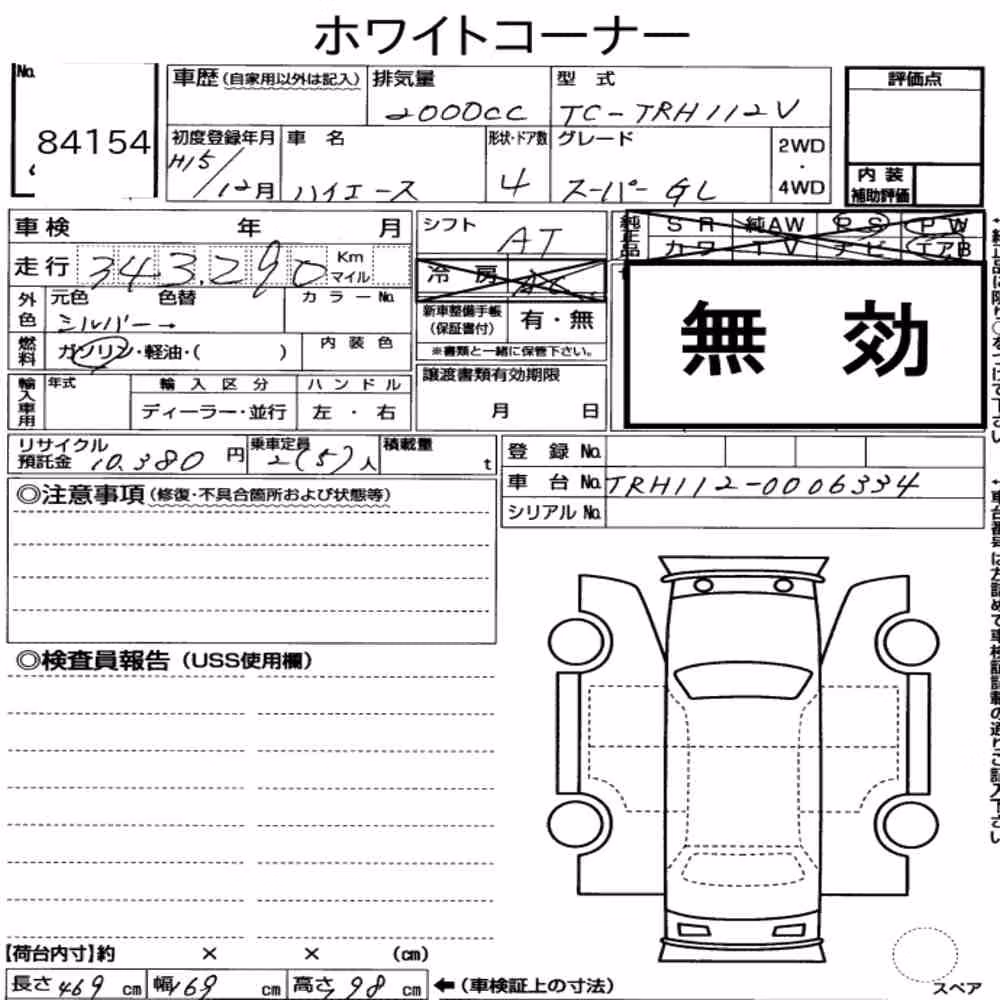 ホワイトコーナー
No. 84154
車歴(自家用以外は記入) 排気量 2000cc 型式 TC-TRH112V 評価点
初度登録年月 H15/12月 車名 ハイエース 形状・ドア数 4 グレード スーパーGL 2WD・4WD
内装補助評価
車検 年 月 シフト AT 純正品 SR 純AW PS PW
カワ TV ナビ エアB
走行 343,290 Km マイル 冷房 AC
無効
外色 元色 色替 カラーNo.
シルバー→
新車整備手帳(保証書付) 有・無
※書類と一緒に保管下さい。
燃料 ガソリン・軽油・( ) 内装色
輸入車用 年式 輸入区分 ハンドル
ディーラー・並行 左・右
譲渡書類有効期限
月 日
リサイクル預託金 10,380円 乗車定員 2(5)人 積載量 t
登録No.
車台No. TRH112-0006334
シリアルNo.
◎注意事項(修復・不具合箇所および状態等)
◎検査員報告(USS使用欄)
【荷台内寸】約 × × (cm)
長さ 469 cm 幅 169 cm 高さ 198 cm ←(車検証上の寸法)
スペア